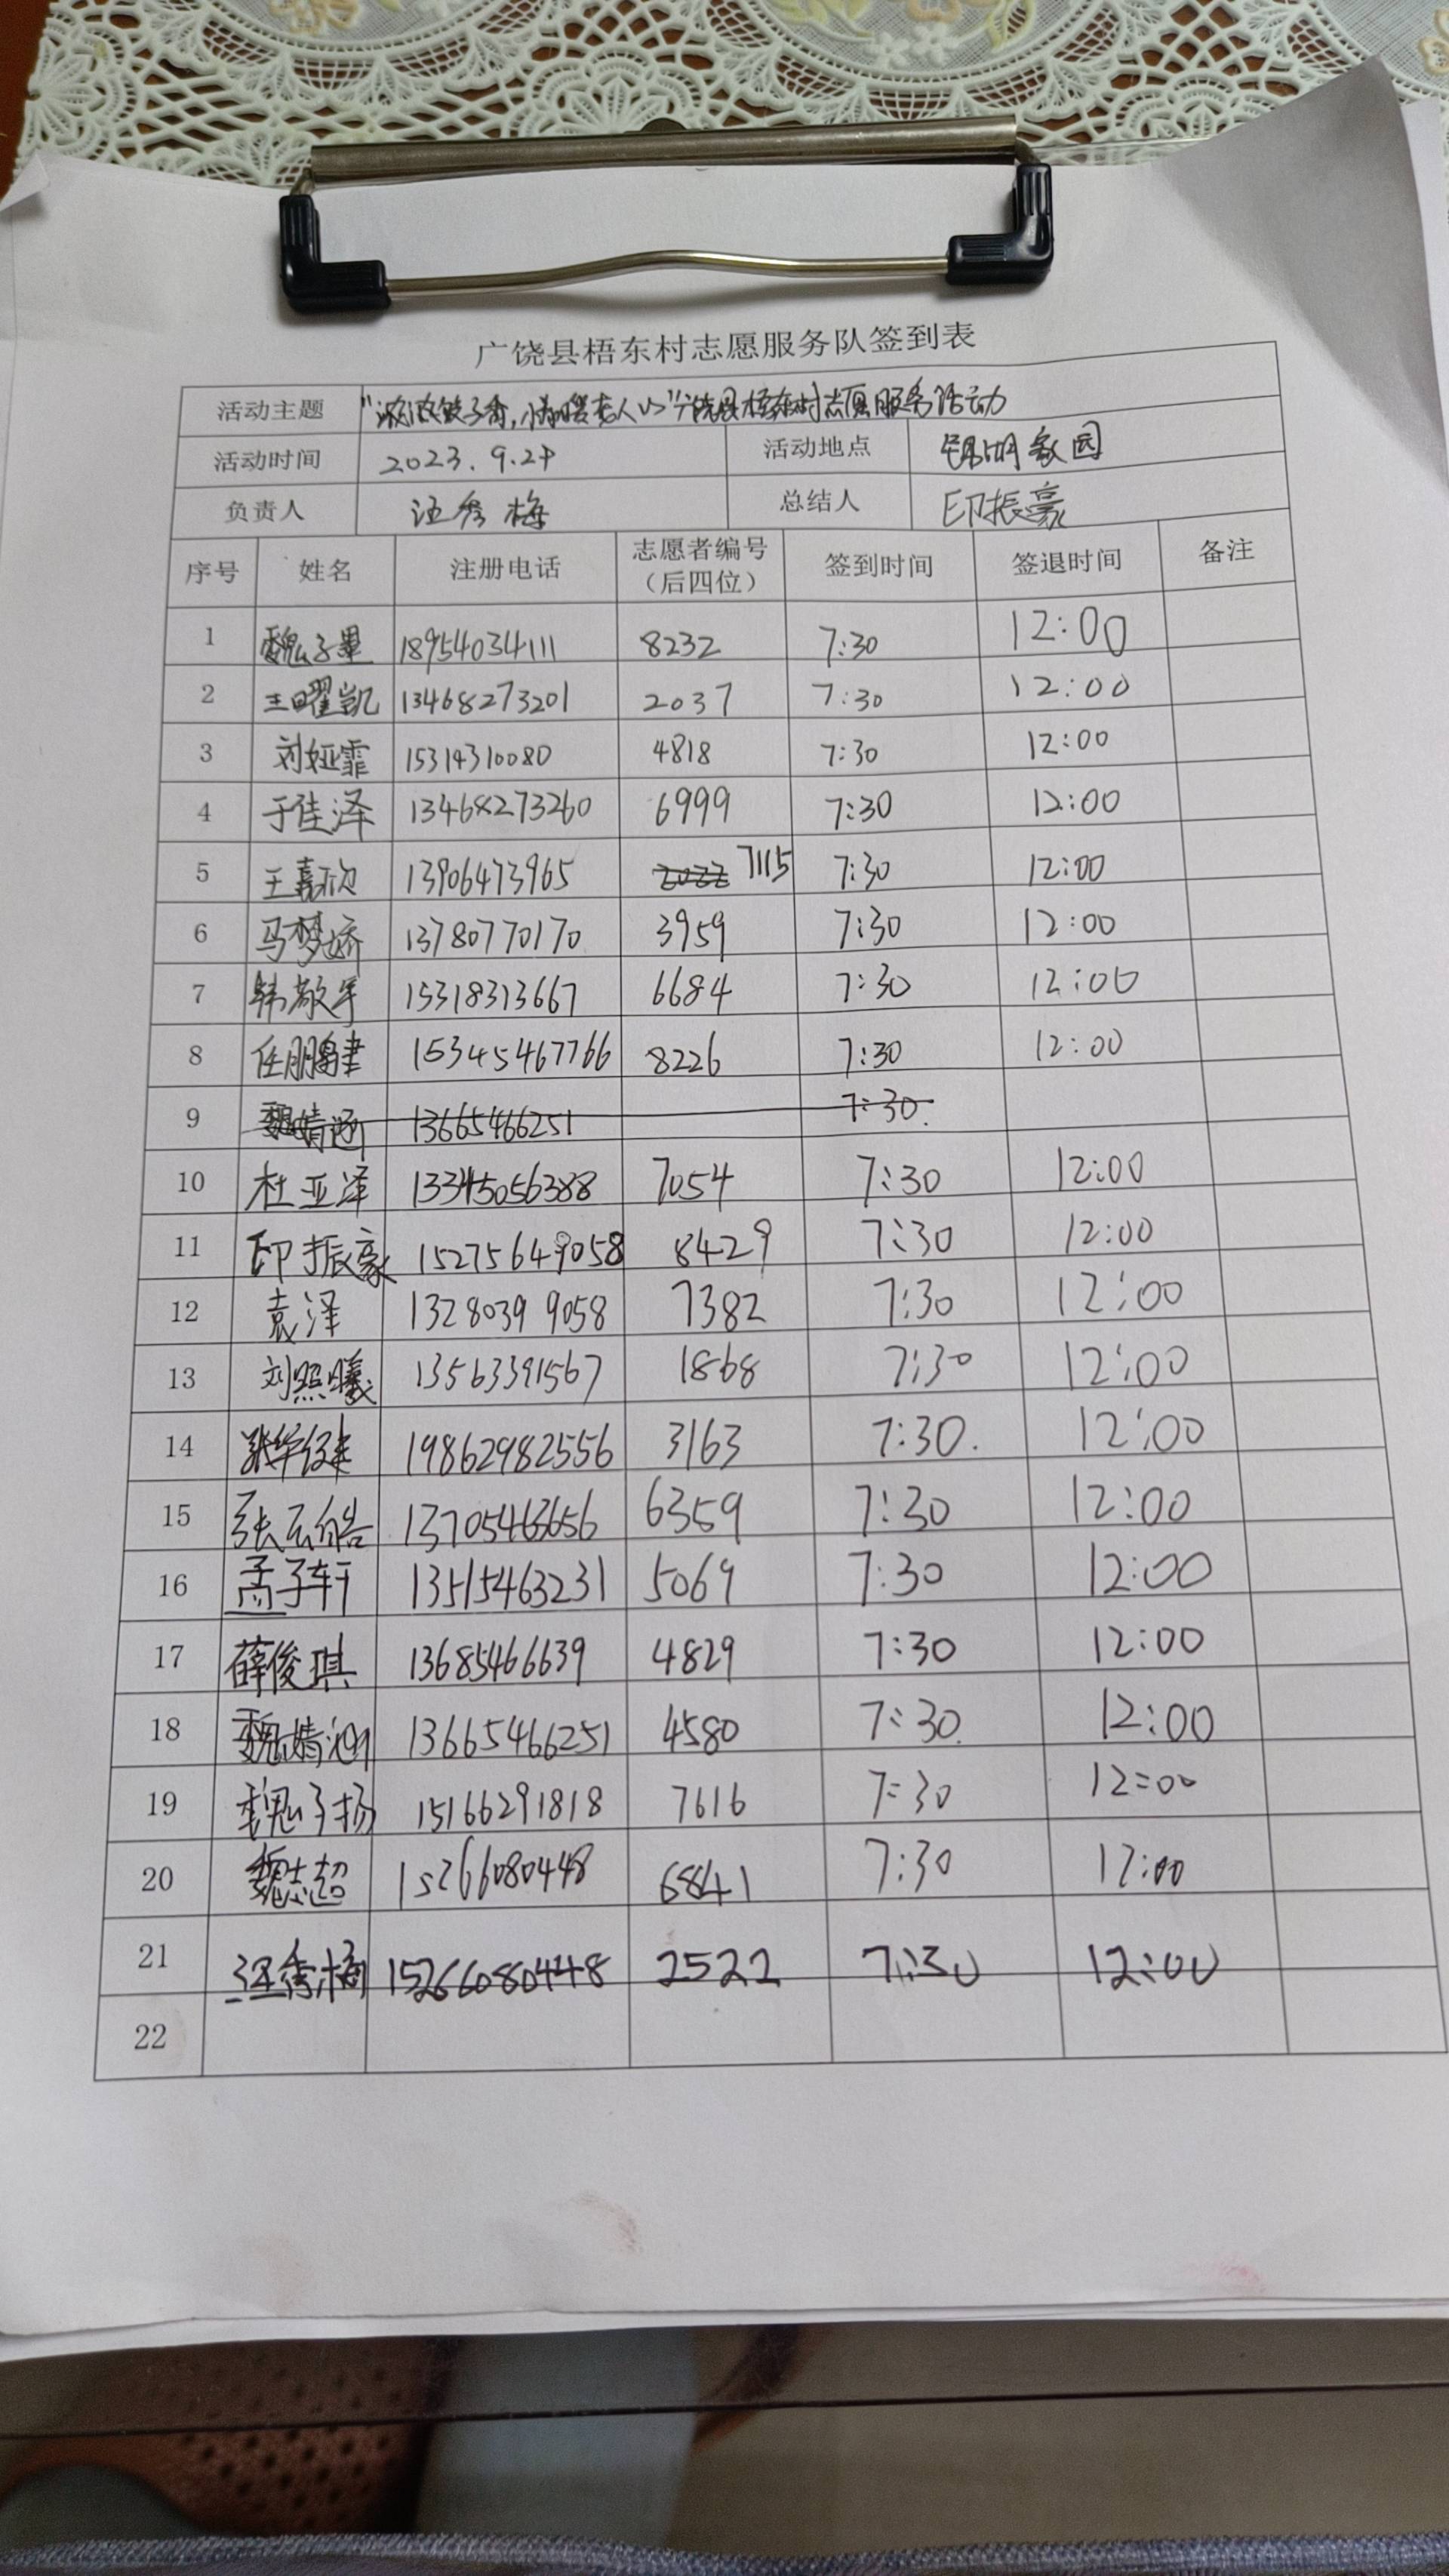 广饶县梧东村志愿服务队签到表
活动主题 "浓浓饺子香,浓情暖老人心"广饶县梧东村志愿服务活动
活动时间 2023.9.24 活动地点 锦湖家园
负责人 汪秀梅 总结人 印振豪
序号 姓名 注册电话 志愿者编号(后四位) 签到时间 签退时间 备注
1 魏子墨 18954034111 8232 7:30 12:00
2 王曜凯 13468273201 2037 7:30 12:00
3 刘娅霏 15314310080 4818 7:30 12:00
4 于佳泽 13468273260 6999 7:30 12:00
5 王嘉欣 13906473965 7115 7:30 12:00
6 马梦娇 13780770170 3959 7:30 12:00
7 韩敬宇 15318313667 6684 7:30 12:00
8 任鹏聿 15345467766 8226 7:30 12:00
9 魏婧涵 13665466251 7:30.
10 杜亚泽 13345056388 7054 7:30 12:00
11 印振豪 15275649058 8429 7:30 12:00
12 袁泽 13280399058 7382 7:30 12:00
13 刘照曦 13563391567 1868 7:30 12:00
14 19862982556 3163 7:30. 12:00
15 张云皓 13705463656 6359 7:30 12:00
16 孟子轩 13515463231 5069 7:30 12:00
17 薛俊琪 13685466639 4829 7:30 12:00
18 魏婧涵 13665466251 4580 7:30. 12:00
19 魏子扬 15166291818 7616 7:30 12:00
20 魏志超 15266080448 6841 7:30 12:00
21 汪秀梅 15266080448 2522 7:30 12:00
22